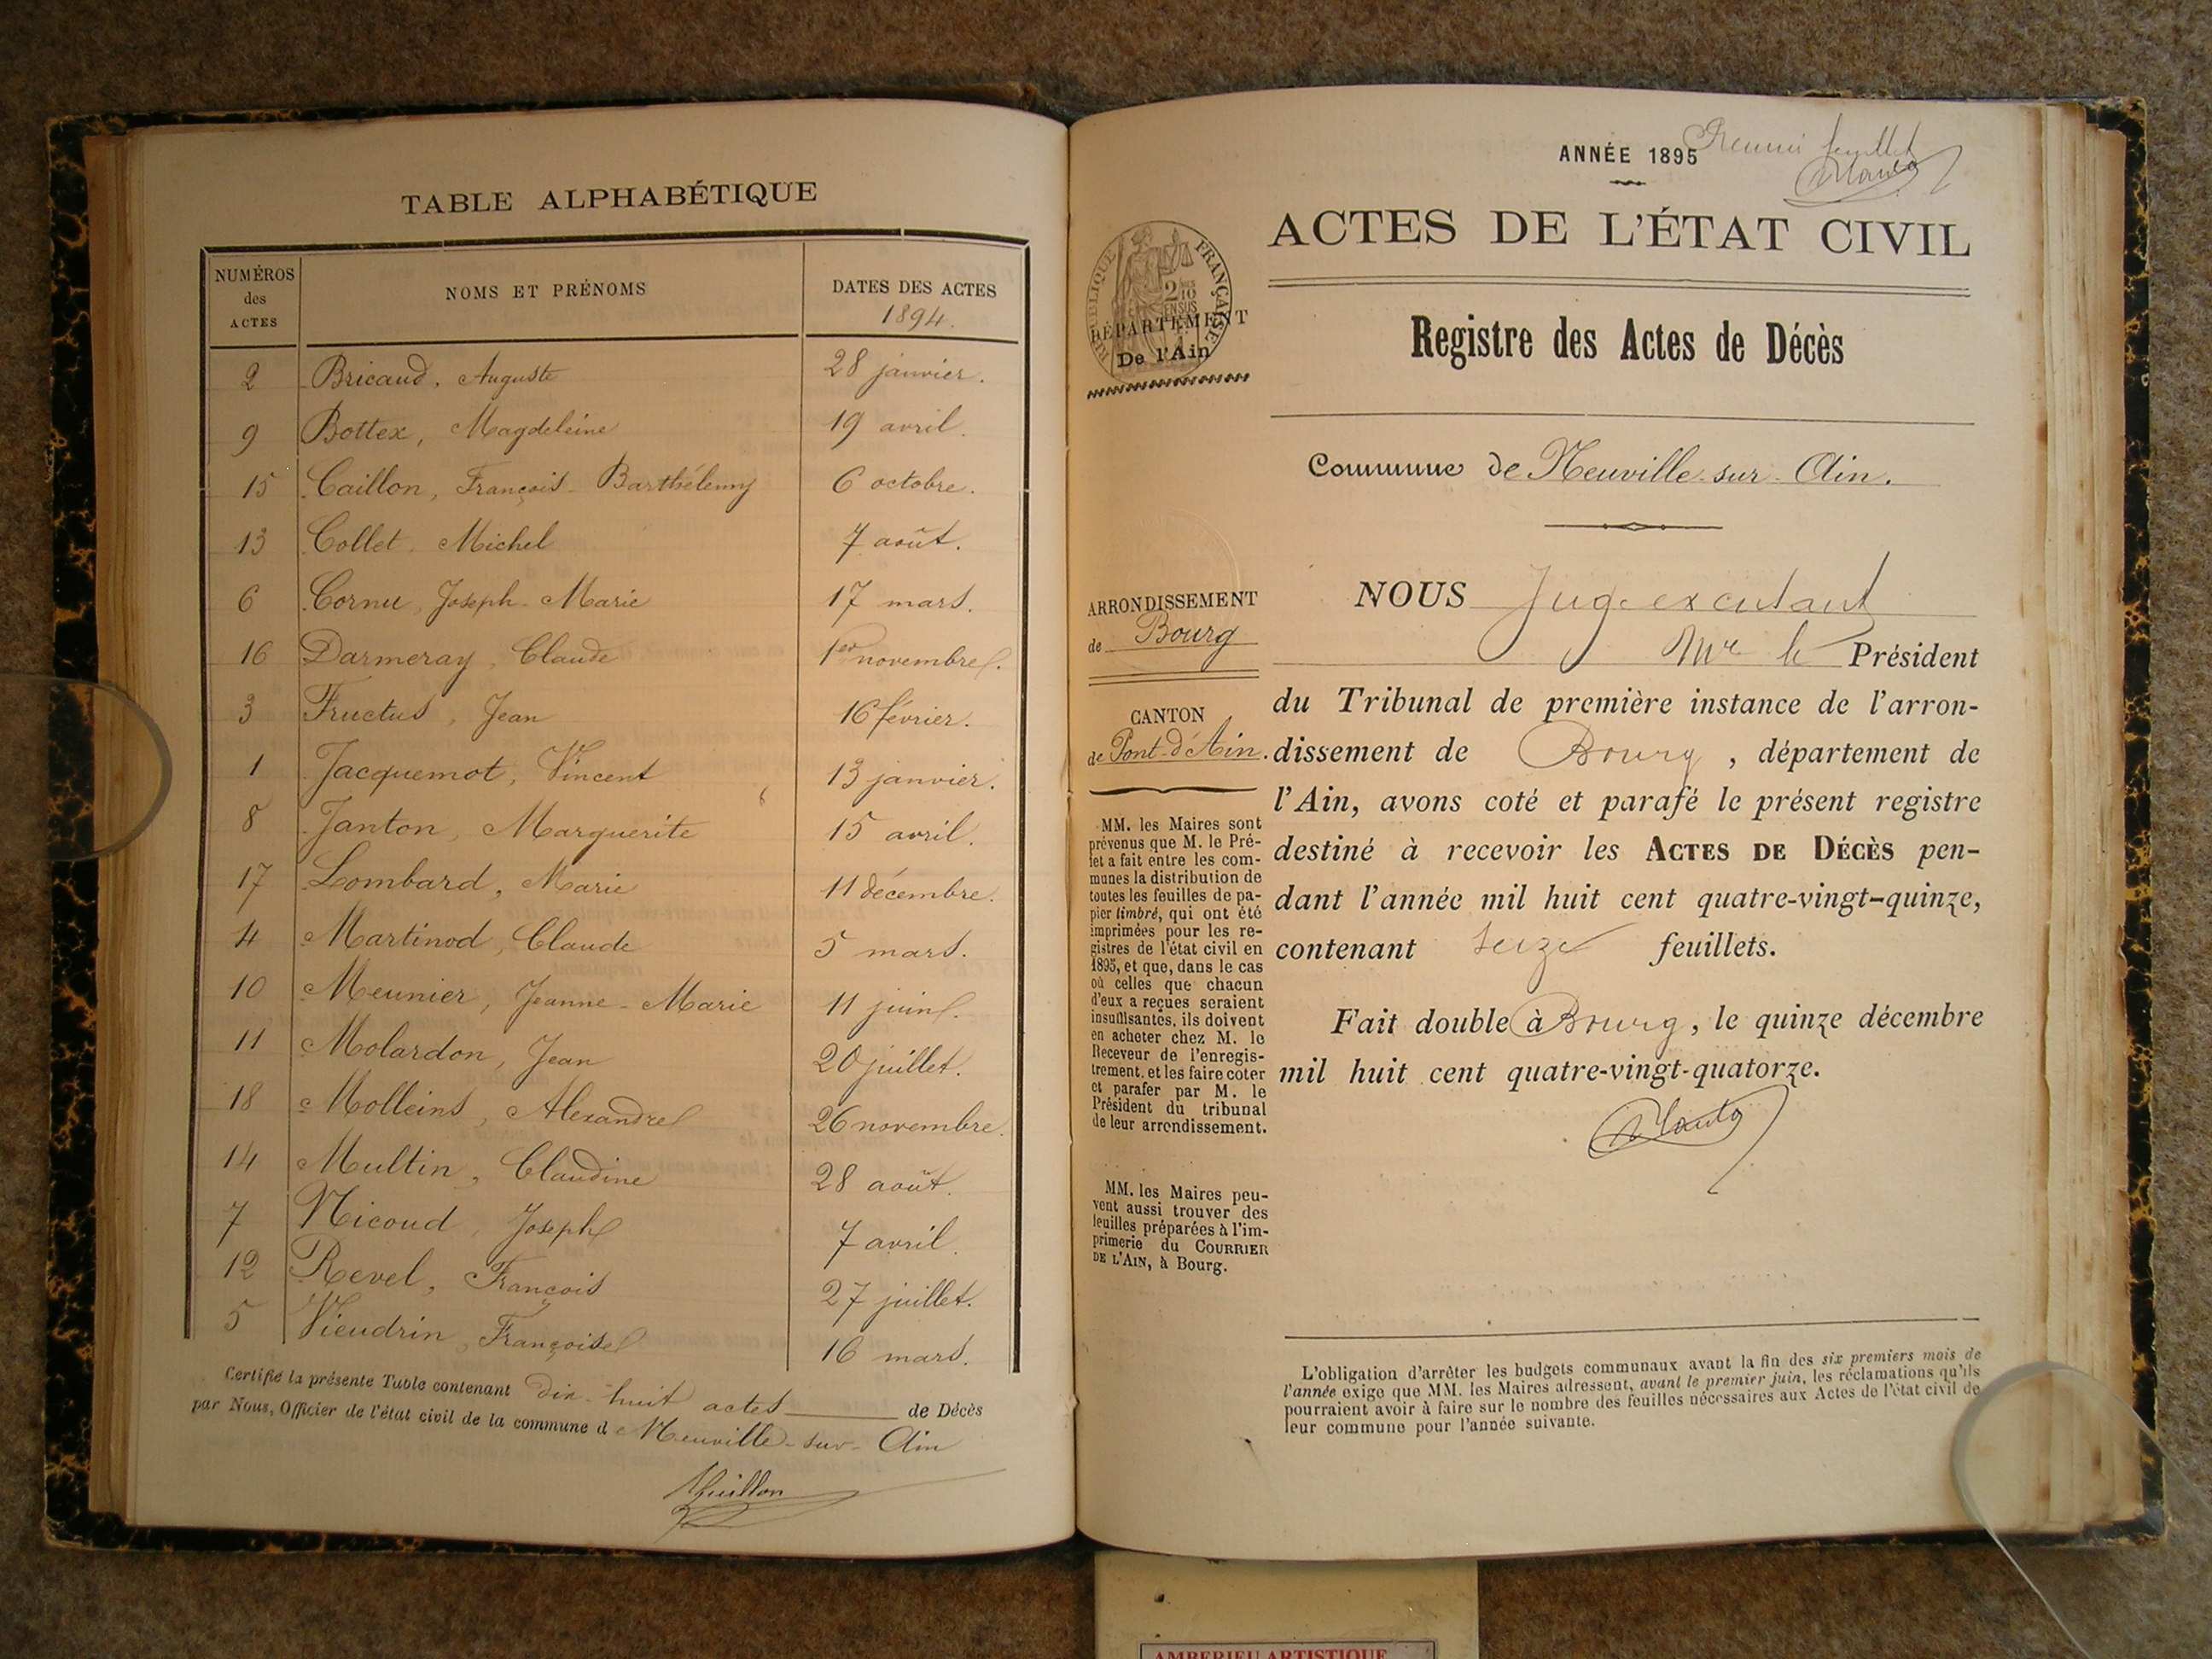 TABLE ALPHABÉTIQUE
NUMÉROS des ACTES
NOMS ET PRÉNOMS
DATES DES ACTES
1894.
2 Bricaud, Auguste 28 janvier.
9 Bottex, Magdeleine 19 avril.
15 Caillon, François-Barthélemy 6 octobre.
13 Collet Michel 7 août.
6 Cornu, Joseph-Marie 17 mars.
16 Darmeray, Claude 1er novembre.
3 Fructus, Jean 16 février.
1 Jacquemot, Vincent 13 janvier.
8 Janton, Marguerite 15 avril.
17 Lombard, Marie 11 décembre.
4 Martinod, Claude 5 mars.
10 Meunier, Jeanne-Marie 11 juin.
11 Molardon, Jean 20 juillet.
18 Molleins, Alexandre 26 novembre.
14 Multin, Claudine 28 août.
7 Nicoud, Joseph 7 avril.
12 Revel, François 27 juillet.
5 Vieudrin, Françoise 16 mars.
Certifié la présente Table contenant dix-huit actes de Décès
par Nous, Officier de l'état civil de la commune de Neuville-sur-Ain
ANNÉE 1895
feuillet
ACTES DE L'ÉTAT CIVIL
RÉPUBLIQUE FRANÇAISE
DÉPARTEMENT
De l'Ain
Registre des Actes de Décès
Commune de Neuville-sur-Ain.
ARRONDISSEMENT
de Bourg
CANTON
de Pont-d'Ain.
MM. les Maires sont
prévenus que M. le Pré-
fet a fait entre les com-
munes la distribution de
toutes les feuilles de pa-
pier timbré, qui ont été
imprimées pour les re-
gistres de l'état civil en
1895, et que, dans le cas
où celles que chacun
d'eux a reçues seraient
insuffisantes, ils doivent
en acheter chez M. le
Receveur de l'enregis-
trement, et les faire coter
et parafer par M. le
Président du tribunal
de leur arrondissement.
MM. les Maires peu-
vent aussi trouver des
feuilles préparées à l'im-
primerie du COURRIER
DE L'AIN, à Bourg.
NOUS Juge
Mr le Président
du Tribunal de première instance de l'arron-
dissement de Bourg, département de
l'Ain, avons coté et parafé le présent registre
destiné à recevoir les ACTES DE DÉCÈS pen-
dant l'année mil huit cent quatre-vingt-quinze,
contenant seize feuillets.
Fait double à Bourg, le quinze décembre
mil huit cent quatre-vingt-quatorze.
L'obligation d'arrêter les budgets communaux avant la fin des six premiers mois de
l'année exige que MM. les Maires adressent, avant le premier juin, les réclamations qu'ils
pourraient avoir à faire sur le nombre des feuilles nécessaires aux Actes de l'état civil de
leur commune pour l'année suivante.
AMBERIEU ARTISTIQUE